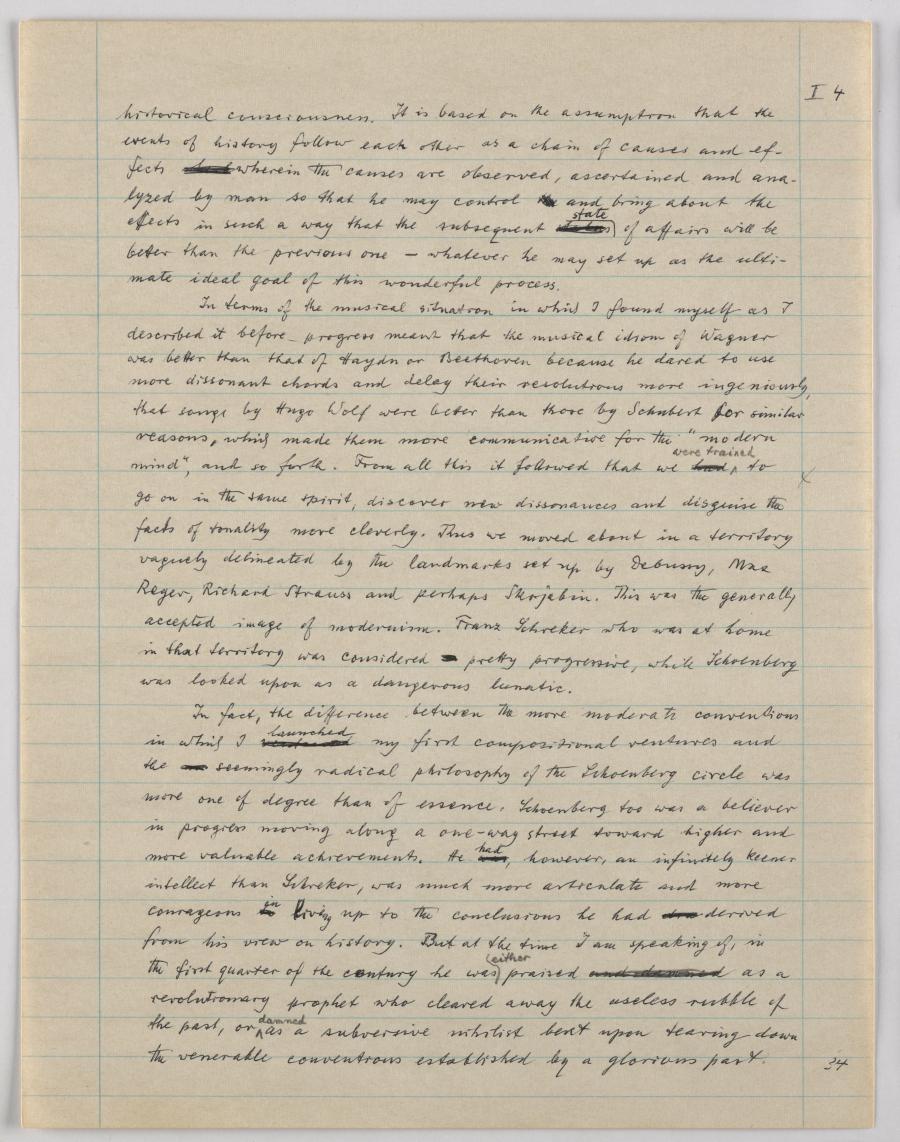 I 4
historical consciousness. It is based on the assumption that the
events of history follow each other as a chain of causes and ef-
fects wherein the causes are observed, ascertained and ana-
lyzed by man so that he may control and bring about the
effects in such a way that the subsequent state of affairs will be
better than the previous one – whatever he may set up as the ulti-
mate ideal goal of this wonderful process.
In terms of the musical situation in which I found myself as I
described it before – progress meant that the musical idiom of Wagner
was better than that of Haydn or Beethoven because he dared to use
more dissonant chords and delay their resolutions more ingeniously,
that songs by Hugo Wolf were better than those by Schubert for similar
reasons, which made them more communicative for the "modern
mind", and so forth. From all this it followed that we were trained to
go on in the same spirit, discover new dissonances and disguise the
facts of tonality more cleverly. Thus we moved about in a territory
vaguely delineated by the landmarks set up by Debussy, Max
Reger, Richard Strauss and perhaps Skrjabin. This was the generally
accepted image of modernism. Franz Schreker who was at home
in that territory was considered pretty progressive, while Schoenberg
was looked upon as a dangerous lunatic.
In fact, the difference between the more moderate conventions
in which I launched my first compositional ventures and
the seemingly radical philosophy of the Schoenberg circle was
more one of degree than of essence. Schoenberg too was a believer
in progress moving along a one-way street toward higher and
more valuable achievements. He had, however, an infinitely keener
intellect than Schreker, was much more articulate and more
courageous in living up to the conclusions he had derived
from his view on history. But at the time I am speaking of, in
the first quarter of the century he was either praised as a
revolutionary prophet who cleared away the useless rubble of
the past, or damned as a subversive nihilist bent upon tearing down
the venerable conventions established by a glorious past.
34